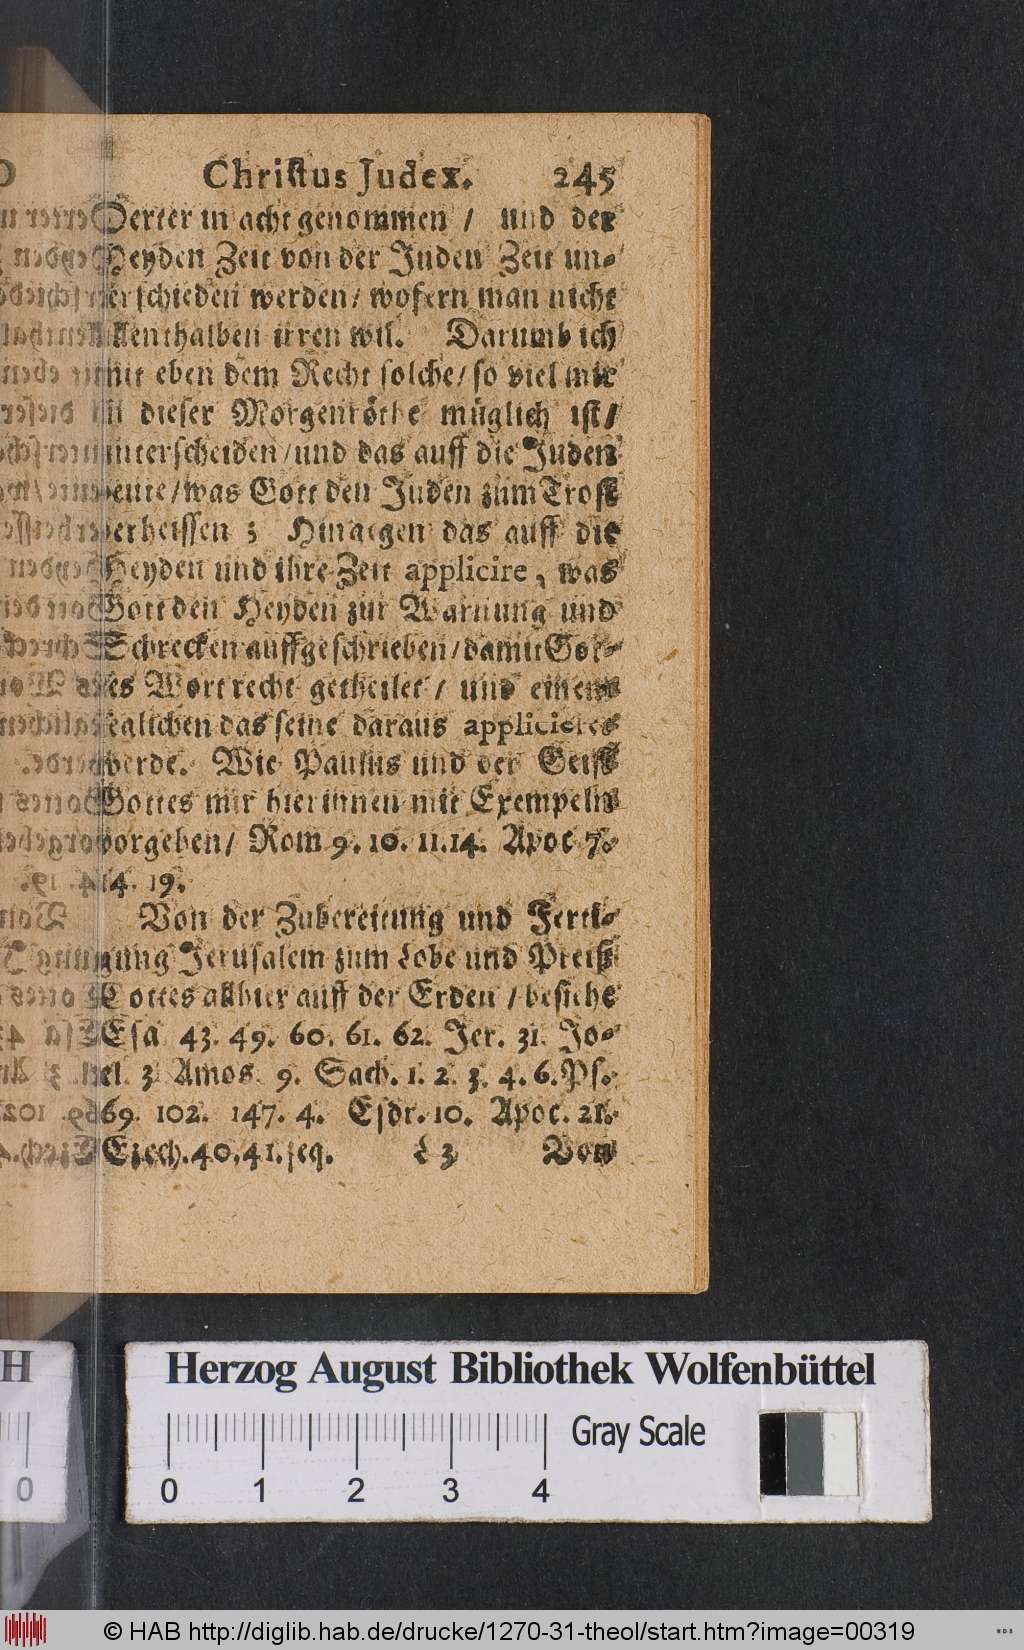 Christus Judex. 245
Oerter in acht genommen / und der
Heyden Zeit von der Juden Zeit un-
terschieden werden / wofern man nicht
allenthalben irren wil. Darumb ich
mit eben dem Recht solche / so viel mir
in dieser Morgenröthe müglich ist /
unterscheiden / und das auff die Juden
deute / was Gott den Juden zum Trost
verheissen ; Hinaegen das auff die
Heyden und ihre Zeit applicire, was
Gott den Heyden zur Warnung und
Schrecken auffgeschrieben / damit Got-
tes Wort recht getheilet / und einem
jeglichen das seine daraus appliciret
werde. Wie Paulus und der Geist
Gottes mir hierinnen mit Exempeln
vorgeben / Rom 9. 10. 11. 14. Apoc 7.
14. 19.
Von der Zubereitung und Ferti-
gung Jerusalem zum Lobe und Preiß
Gottes allhier auff der Erden / besiehe
Esa 43. 49. 60. 61. 62. Jer. 31. Jo-
el. 3 Amos. 9. Sach. 1. 2. 3. 4. 6. Ps.
69. 102. 147. 4. Esdr. 10. Apoc. 21.
Ezech. 40. 41. seq. L 3 Von
H
Herzog August Bibliothek Wolfenbüttel
Gray Scale
0 0 1 2 3 4
© HAB http://diglib.hab.de/drucke/1270-31-theol/start.htm?image=00319
WDB